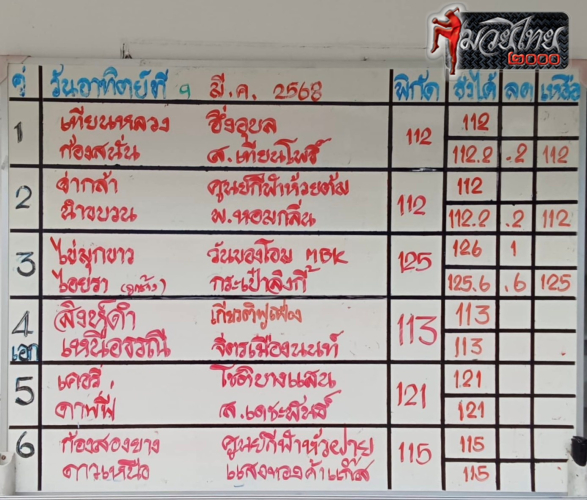 มวยไทย
๒๐๐๐
คู่ วันอาทิตย์ที่ 9 มี.ค. 2568 พิกัด ชั่งได้ ลด เหลือ
1 เทียนหลวง ซึ้งอุบล 112 112
ก้องสนั่น ส.เทียนโพธิ์ 112.2 .2 112
2 จ่ากล้า ศูนย์กีฬาห้วยต้ม 112 112
นำขบวน พ.หอมกลิ่น 112.2 .2 112
3 ไข่มุกขาว วันของโอม MBK 125 126 1
ไอยรา กระเป๋าลิงกี้ 125.6 .6 125
4 สิงห์ดำ เกียรติฟูเฟื่อง 113 113
เอก เหนือธรณี จิตรเมืองนนท์ 113
5 เคอรี่ โชติบางแสน 121 121
คาฟฟี่ ส.เดชะพันธ์ 121
6 ก้องสองยาง ศูนย์กีฬาหัวฝาย 115 115
ดาวเหนือ แสงทองค้าแก๊ส 115